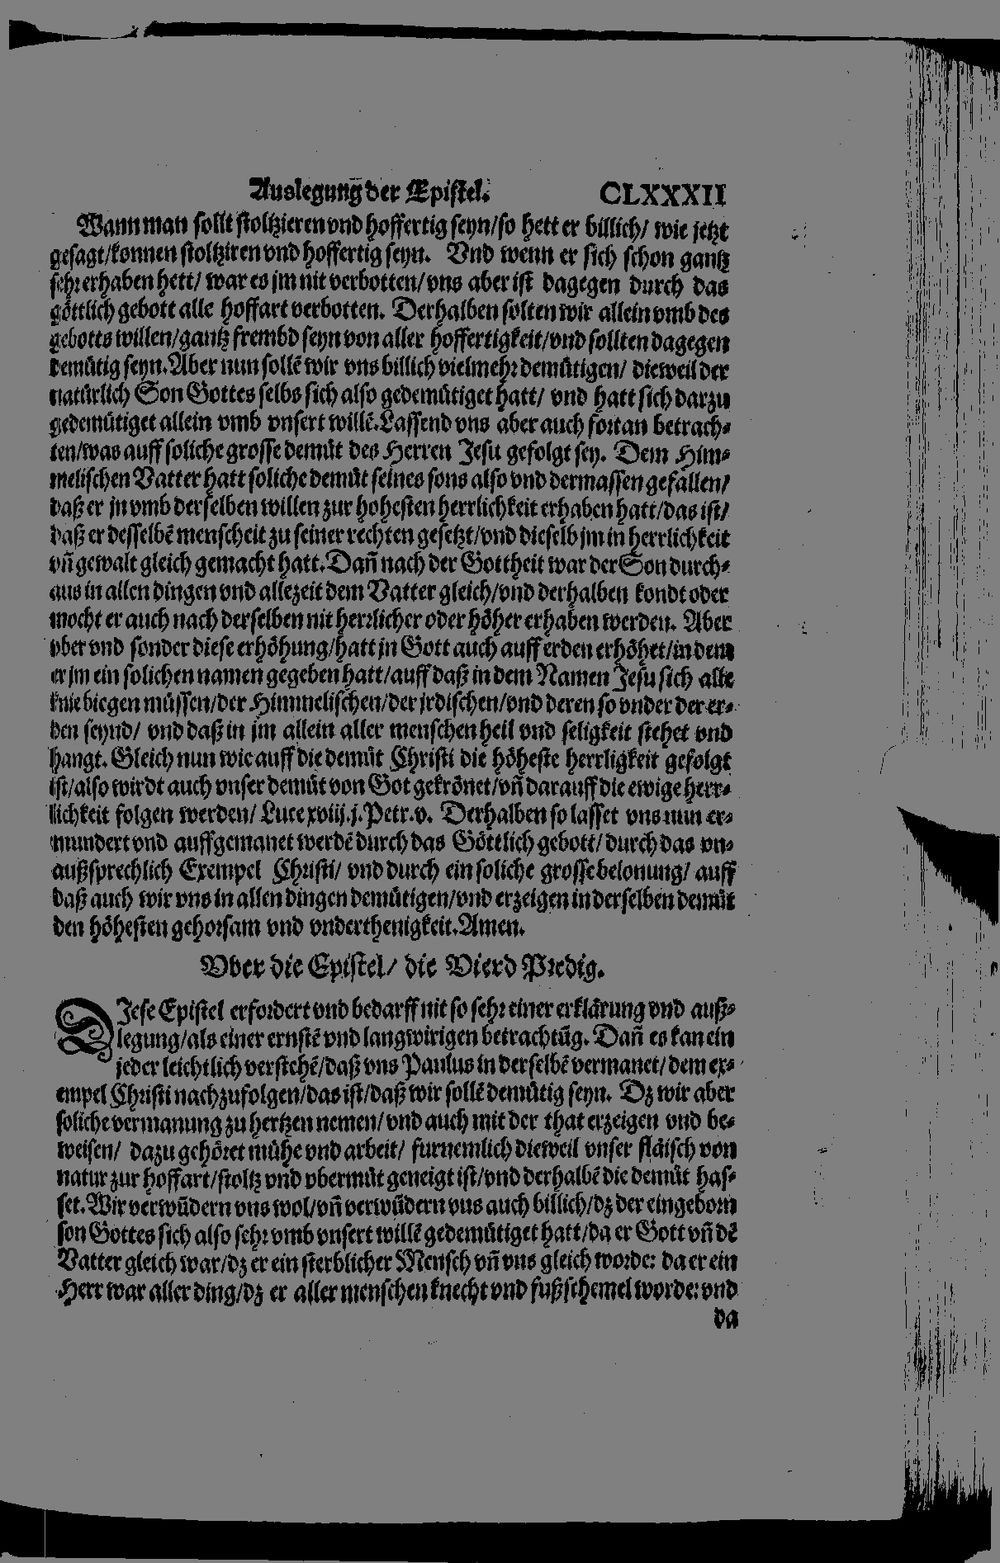 Auslegung der Epistel. CLXXXII
Wann man sollt stoltzieren vnd hoffertig seyn/so hett er billich/ wie jetzt
gesagt/konnen stoltziren vnd hoffertig seyn. Vnd wenn er sich schon gantz
sehr erhaben hett/ war es jm nit verbotten/vns aber ist dagegen durch das
göttlich gebott alle hoffart verbotten. Derhalben solten wir allein vmb des
gebotts willen/gantz frembd seyn von aller hoffertigkeit/vnd sollten dagegen
demütig seyn. Aber nun sollē wir vns billich vielmehr demütigen/ dieweil der
natürlich Son Gottes selbs sich also gedemütiget hatt/ vnd hatt sich darzu
gedemütiget allein vmb vnsert willē. Lassend vns aber auch fortan betrach-
ten/was auff soliche grosse demüt des Herren Jesu gefolgt sey. Dem Him-
melischen Vatter hatt soliche demüt seines sons also vnd dermassen gefallen/
daß er jn vmb derselben willen zur hohesten herrlichkeit erhaben hatt/das ist/
daß er desselbē menscheit zu seiner rechten gesetzt/vnd dieselb jm in herrlichkeit
vñ gewalt gleich gemacht hatt. Dañ nach der Gottheit war der Son durch-
aus in allen dingen vnd allezeit dem Vatter gleich/vnd derhalben kondt oder
mocht er auch nach derselben nit herrlicher oder höher erhaben werden. Aber
vber vnd sonder diese erhöhung/hatt jn Gott auch auff erden erhöhet/in dem
er jm ein solichen namen gegeben hatt/auff daß in dem Namen Jesu sich alle
knie biegen müssen/der Himmelischen/der jrdischen/vnd deren so vnder der er-
den seynd/ vnd daß in jm allein aller menschen heil vnd seligkeit stehet vnd
hangt. Gleich nun wie auff die demüt Christi die höheste herrligkeit gefolgt
ist/also wirdt auch vnser demüt von Got gekrönet/vñ darauff die ewige herr-
lichkeit folgen werden/ Luce xviij.j.Petr.v. Derhalben so lasset vns nun er-
mundert vnd auffgemanet werdē durch das Göttlich gebott/ durch das vn-
außsprechlich Exempel Christi/ vnd durch ein soliche grosse belonung/ auff
daß auch wir vns in allen dingen demütigen/vnd erzeigen in derselben demüt
den höhesten gehorsam vnd vnderthenigkeit. Amen.
Vber die Epistel/ die Vierd Predig.
DJese Epistel erfordert vnd bedarff nit so sehr einer erklärung vnd auß-
legung/als einer ernstē vnd langwirigen betrachtũg. Dañ es kan ein
jeder leichtlich verstehē/daß vns Paulus in derselbē vermanet/dem ex-
empel Christi nachzufolgen/das ist/daß wir sollē demütig seyn. Dz wir aber
soliche vermanung zu hertzen nemen/vnd auch mit der that erzeigen vnd be-
weisen/ dazu gehöret mühe vnd arbeit/ furnemlich dieweil vnser fläisch von
natur zur hoffart/stoltz vnd vbermut geneigt ist/vnd derhalbē die demüt has-
set. Wir verwũdern vns wol/vñ verwũdern vns auch billich/dz der eingeborn
son Gottes sich also sehr vmb vnsert willē gedemütiget hatt/da er Gott vñ dē
Vatter gleich war/dz er ein sterblicher Mensch vñ vns gleich worde: da er ein
Herr war aller ding/dz er aller menschen knecht vnd fußschemel worde: vnd
da